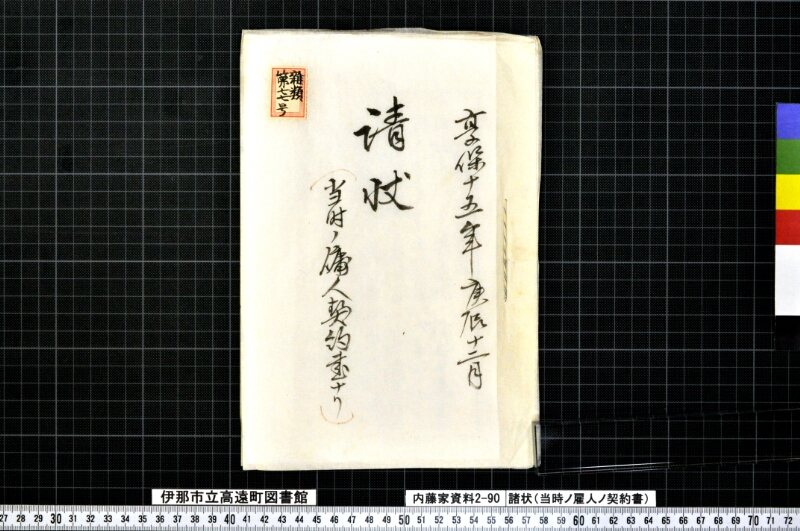 享保十五年庚辰十二月
請状
(当時ノ傭人契約書ナリ)
雑類
第七号
伊那市立高遠町図書館
内藤家資料2-90 諸状(当時ノ雇人ノ契約書)
27 28 29 30 31 32 33 34 35 36 37 38 39 40 41 42 43 44 45 46 47 48 49 50 51 52 53 54 55 56 57 58 59 60 61 62 63 64 65 66 67 68 69 70 71 72